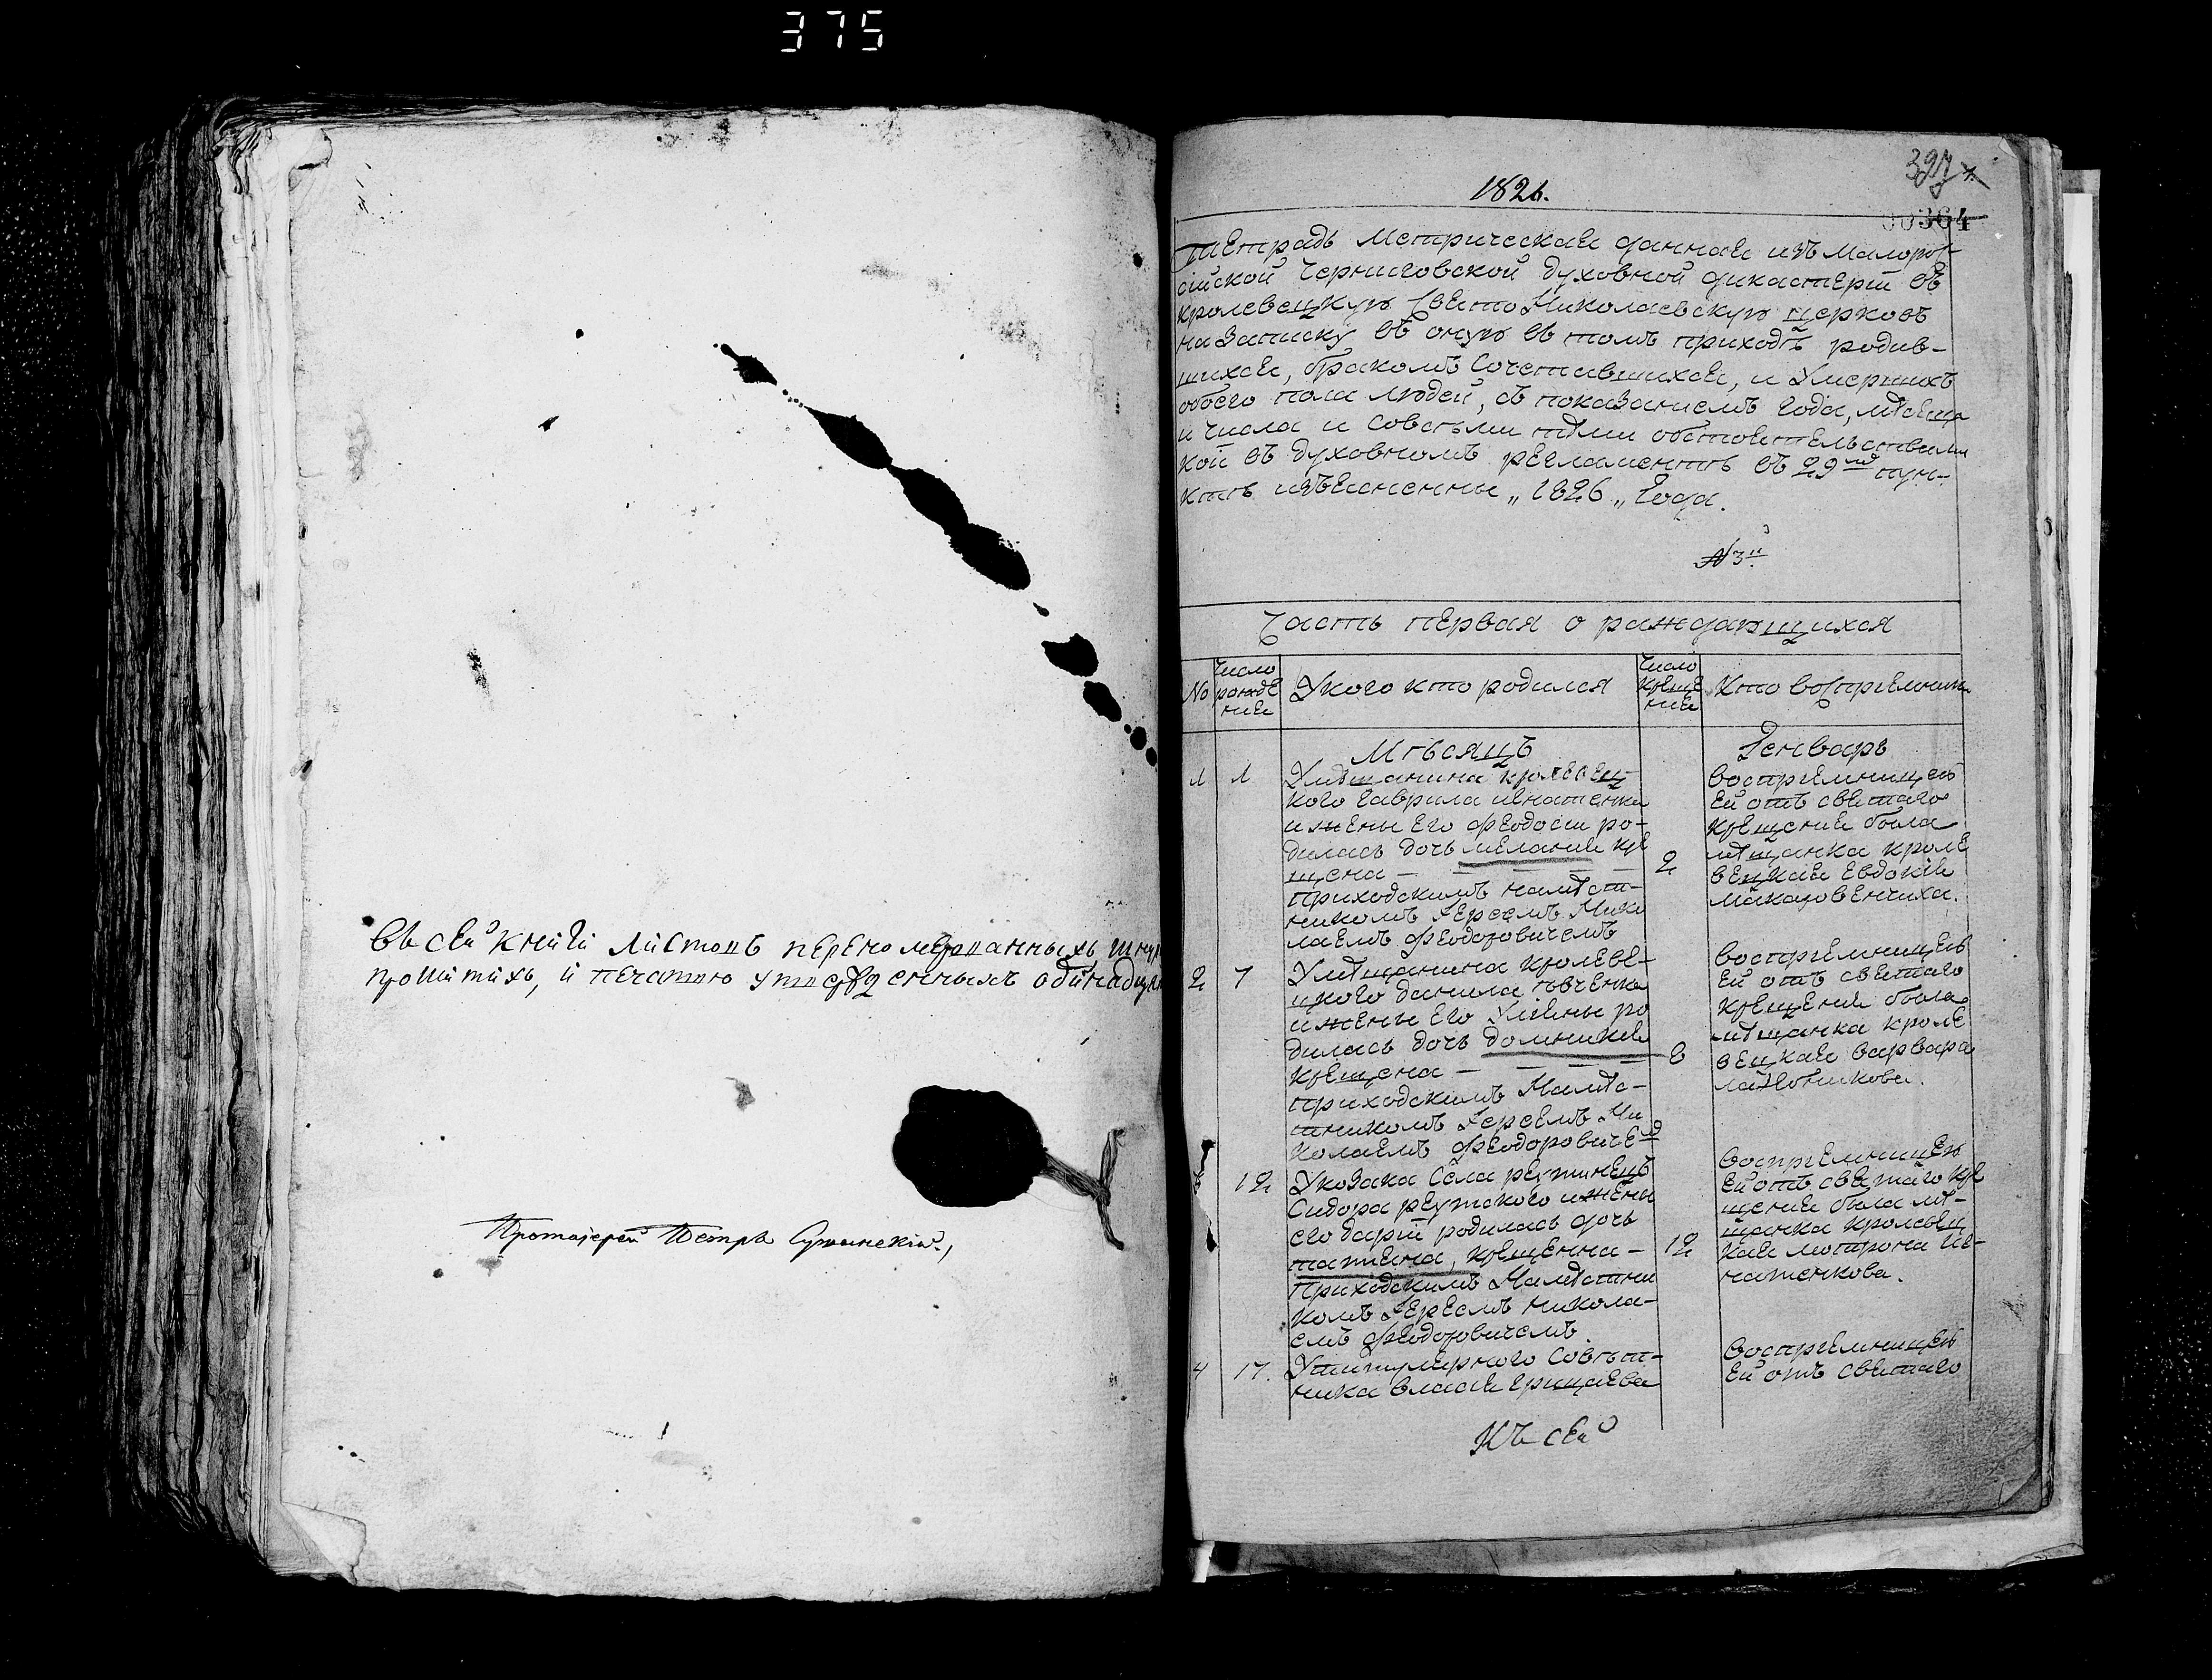 375
Въ сей книги листовъ переномерованныхъ шнур
прошитихъ, и печатию утвержденныхъ одинадцат
Протоіерей Петръ
397
1826.
00364
Тетрадь Метрическая данная изъ Малорос-
сійской Черниговской Духовной дикастеріи въ
кролевецкую Свято Николаевскую церковъ
на Записку въ оную въ томъ приходѣ родив-
шихся, бракомъ Сочетавшихся, и Умершихъ
обоего пола людей, съ показаниемъ года, мѣсяца
и числа и Совсѣми тѣми обстоятельствами
кои въ Духовномъ регламентѣ въ 29 мъ пун-
ктѣ изъяснены „1826„ Года.
N 3 й
Часть первая о раждающихся
No
Число рожде ния
У кого кто родился
Число креще ния
Кто восприемник
Мѣсяцъ Генварь
1 1 У мѣщанина кролевец-
кого Гаврила Игнатенка
и жены Его Феодосии ро-
дилась дочь мелания кре
щена — 2
приходскимъ намѣст-
никомъ Іереемъ Нико
лаемъ Феодоровичемъ
восприемницею
Ей отъ святаго
крещения была
мѣщанка кроле
вецкая Евдокия
макаровенчиха.
2 7 У мѣщанина кролеве-
цкого данила
и жены Его Улияны ро
дилась дочь домникия
крещена — 8
приходскимъ Намѣс-
тникомъ Іереемъ Ни
колаемъ Феодоровичемъ
восприемницею
Ей отъ святаго
крещения была
мѣщанка кроле
вецкая варвара
12 У козака Села реутинецъ
Сидора реутского и жены
его дарии родилась дочь
татиана, крещенна — 12
приходскимъ Намѣстни
комъ Іереемъ Никола-
емъ Феодоровичемъ.
восприемницею
Ей отъ святаго кре
щения была мѣ-
щанка кролевец
кая мотрона Иг-
натенкова.
4 17. У титулярного Совѣт-
ника власия грицаева
восприемницею
Ей отъ святаго
Къ сей